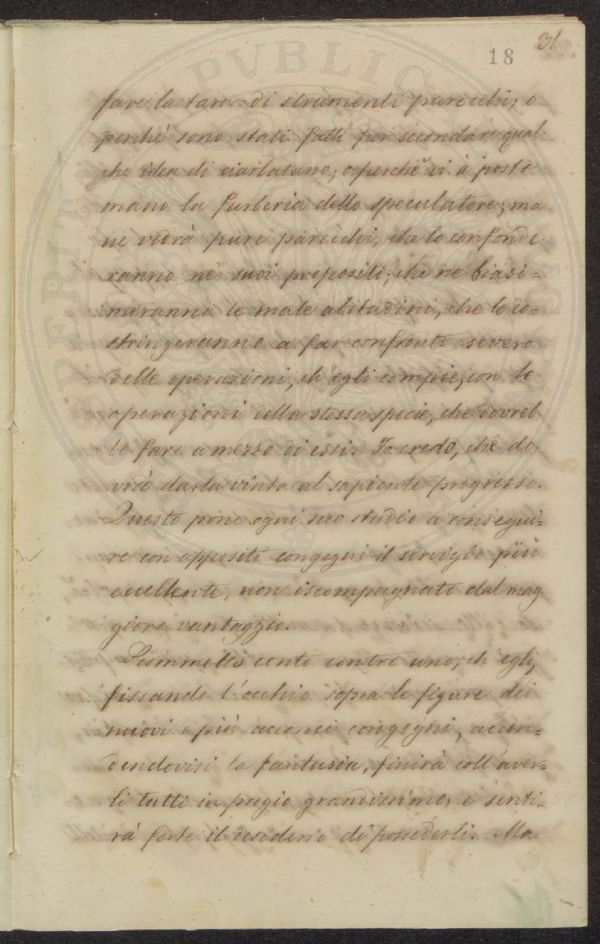 31
18
fare la tara di strumenti parecchi; o
perchè sono stati fatti per secondare qual-
che idea di ciarlatano; o perchè vi à posto
mano la furberia dello speculatore; ma
ne vedrà pure parecchi, che lo confonde-
ranno ne' suoi propositi; che ne biasi-
meranno le male abitudini, che lo co-
stringeranno a far confronto severo
delle operazioni, ch'egli compie, con le
operazioni della stessa specie, che dovreb
be fare a mezzo di essi. Io credo, che do-
vrà darla vinta al sapiente progresso.
Questo pone ogni suo studio a consegui-
re con appositi congegni il servigio più
eccellente, non iscompagnato dal mag
giore vantaggio.
Scommetto cento contro uno, ch'egli,
fissando l'occhio sopra le figure dei
nuovi e più acconci congegni, accen-
dendovisi la fantasia, finirà coll'aver-
li tutti in pregio grandissimo, e senti-
rà forte il desiderio di possederli. Ma